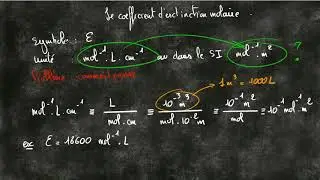 Le coefficient d'extinction molaire
symbole : ε
unité mol⁻¹ . L . cm⁻¹ ou dans le SI mol⁻¹ . m² ?
Problème : comment passer
1 m³ = 1000 L
mol⁻¹ . L . cm⁻¹ ≡ L / mol . cm ≡ 10⁻³ m³ / mol . 10⁻² m ≡ 10⁻¹ m² / mol ≡ 10⁻¹ mol⁻¹ m²
ex : ε = 16600 mol⁻¹ . L